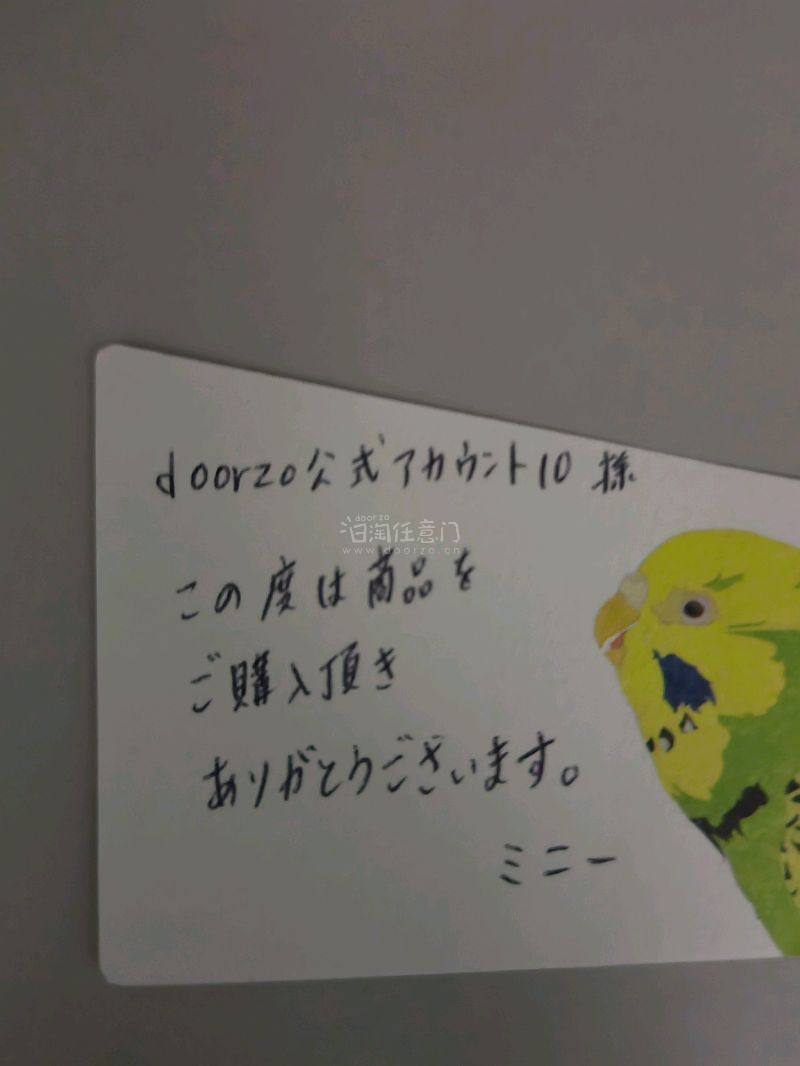 doorzo公式アカウント10 様
doorzo
日淘任意门
www.doorzo.cn
この度は商品を
ご購入頂き
ありがとうございます。
ミニー